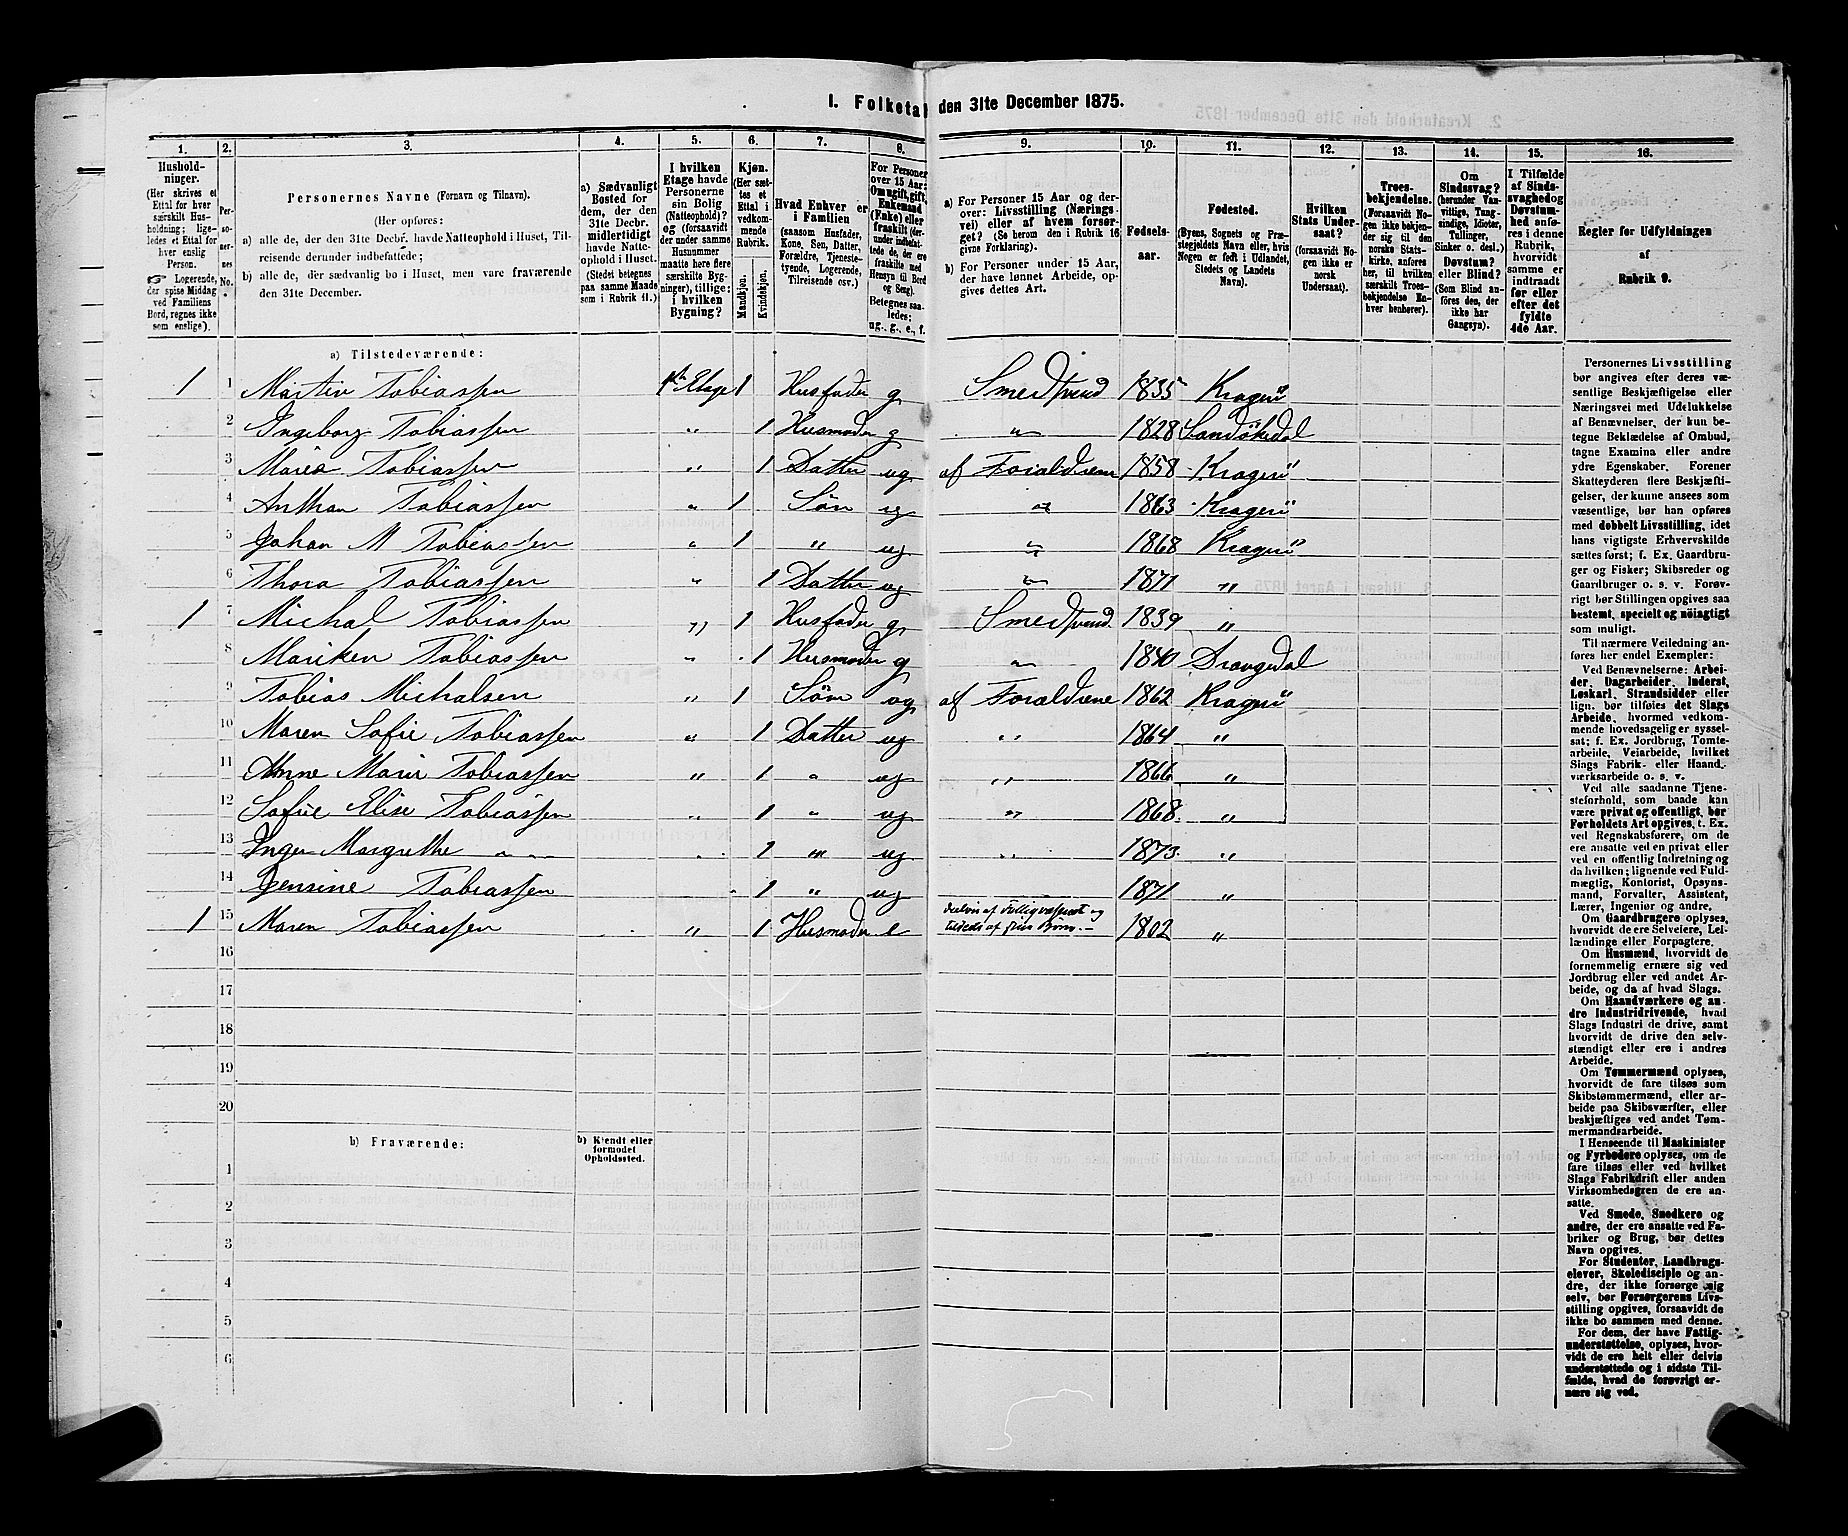 I. Folketal den 31te December 1875.
1. 2. 3. 4. 5. 6. 7. 8. 9. 10. 11. 12. 13. 14. 15. 16.
Hushold-
ninger.
(Her skrives et
Ettal for hver
særskilt Hus-
holdning; lige-
ledes et Ettal for
hver enslig
Person.
☞ Logerende,
der spise Middag
ved Familiens
Bord, regnes ikke
som enslige).
Per-
so-
ner-
nes
No.
Personernes Navne (Fornavn og Tilnavn).
(Her opføres:
a) alle de, der den 31te Decbr. havde Natteophold i Huset, Til-
reisende derunder indbefattede;
b) alle de, der sædvanlig bo i Huset, men vare fraværende
den 31te December.
a) Sædvanligt
Bosted for
dem, der den
31te Decbr.
midlertidigt
havde Natte-
ophold i Huset.
(Stedet betegnes
paa samme Maade
som i Rubrik 11.)
I hvilken
Etage havde
Personerne
sin Bolig
(Natteophold)?
og (forsaavidt
der under samme
Husnummer
maatte høre flere
særskilte Byg-
ninger), tillige:
i hvilken
Bygning?
Kjøn.
(Her sæt-
tes et
Ettal i
vedkom-
mende
Rubrik.
Mandkjøn.
Kvindekjøn.
Hvad Enhver er
i Familien
(saasom Husfader,
Kone, Søn, Datter,
Forældre, Tjeneste-
tyende, Logerende,
Tilreisende osv.)
For Personer
over 15 Aar:
Om ugift, gift,
Enkemand
(Enke) eller
fraskilt (der-
under indbefat-
tede de, der ere
fraskilte med
Hensyn til Bord
og Seng).
Betegnes saa-
ledes:
ug., g., e., f.
a) For Personer 15 Aar og der-
over: Livsstilling (Nærings-
vei) eller af hvem forsør-
get? (Se herom den i Rubrik 16
givne Forklaring).
b) For Personer under 15 Aar,
der have lønnet Arbeide, op-
gives dettes Art.
Fødsels-
aar.
Fødested.
(Byens, Sognets og Præ-
stegjeldets Navn eller, hvis
Nogen er født i Udlandet,
Stedets og Landets
Navn).
Hvilken
Stats Under-
saat?
(forsaavidt No-
gen ikke er
norsk
Undersaat).
Troes-
bekjendelse.
(Forsaavidt No-
gen ikke bekjen-
der sig til den
norske Stats-
kirke, anføres
her, til hvilken
særskilt Troes-
bekjendelse En-
hver henhører).
Om
Sindssvag?
(herunder Van-
vittige, Tung-
sindige, Idioter,
Tullinger,
Sinker o. desl.)
Døvstum?
eller Blind?
(Som Blind an-
føres den, der
ikke har
Gangsyn).
I Tilfælde
af Sinds-
svaghed og
Døvstum-
hed anfø-
res i denne
Rubrik,
hvorvidt
samme er
indtraadt
før eller
efter det
fyldte
4de Aar.
Regler for Udfyldningen
af
Rubrik 9.
a) Tilstedeværende:
1 1 Martin Tobiassen 1ste Etage 1 Husfader g Smedsvend 1835 Kragerö
2 Ingeborg Tobiassen „ 1 Husmoder g „ 1828 Sandökedal
3 Maria Tobiassen „ 1 Datter ug af Forældrene 1858 Kragerö
4 Anthon Tobiassen „ 1 Sön ug „ 1863 Kragerö
5 Johan M Tobiassen „ 1 „ ug „ 1868 Kragerö
6 Thora Tobiassen „ 1 Datter ug „ 1871 „
1 7 Michal Tobiassen „ 1 Husfader g Smedsvend. 1839 „
8 Mariken Tobiassen „ 1 Husmoder g „ 1840 Drangedal
9 Tobias Michalsen „ 1 Sön ug af Forældrene 1862 Kragerö
10 Maren Sofie Tobiassen „ 1 Datter ug „ 1864 „
11 Anne Marie Tobiassen „ 1 „ ug „ 1866 „
12 Sofie Elise Tobiassen „ 1 „ ug „ 1868. „
13 Inger Margrethe „ „ „ 1 „ ug „ 1873. „
14 Gensine Tobiassen 1 „ ug 1871 „
1 15 Maren Tobiassen „ 1 Husmoder e delvis af og tildels af sine Börn.- 1802 „
16
17
18
19
20
b) Fraværende:
b) Kjendt eller
formodet
Opholdssted.
1
2
3
4
5
6
Personernes Livsstilling
bør angives efter deres væ-
sentlige Beskjæftigelse eller
Næringsvei med Udelukkelse
af Benævnelser, der kun be-
tegne Beklædelse af Ombud,
tagne Examina eller andre
ydre Egenskaber. Forener
Skatteyderen flere Beskjæfti-
gelser, der kunne ansees som
væsentlige, bør han opføres
med dobbelt Livsstilling, idet
hans vigtigste Erhvervskilde
sættes først; f. Ex. Gaardbru-
ger og Fisker; Skibsreder og
Gaardbruger o. s. v. Forøv-
rigt bør Stillingen opgives saa
bestemt, specielt og nöiagtigt
som muligt.
Til nærmere Veiledning an-
føres her endel Exempler:
Ved Benævnelserne: Arbei-
der, Dagarbeider, Inderst,
Løskarl, Strandsidder eller
lign. bør tilføies det Slags
Arbeide, hvormed vedkom-
mende hovedsagelig er syssel-
sat; f. Ex. Jordbrug, Tomte-
arbeide, Veiarbeide, hvilket
Slags Fabrik- eller Haand-
værksarbeide o. s. v.
Ved alle saadanne Tjene-
steforhold, som baade kan
være privat og offentligt, bør
Forholdets Art opgives, t. Ex.
ved Regnskabsførere, om de
ere ansatte ved en privat eller
ved en offentlig Indretning og
da hvilken; lignende ved Fuld-
mægtig, Kontorist, Opsyns-
mand, Forvalter, Assistent,
Lærer, Ingeniør og andre.
Om Gaardbrugere oplyses,
hvorvidt de ere Selveiere, Lei-
lændinge eller Forpagtere.
Om Husmænd, hvorvidt de
fornemmelig ernære sig ved
Jordbrug eller ved andet Ar-
beide, og da af hvad Slags.
Om Haandværkere og an-
dre Industridrivende, hvad
Slags Industri de drive, samt
hvorvidt de drive den selv-
stændigt eller ere i andres
Arbeide.
Om Tømmermænd oplyses,
hvorvidt de fare tilsøs som
Skibstømmermænd, eller ar-
beide paa Skibsværfter, eller
beskjæftiges ved andet Tøm-
mermandsarbeide.
I Henseende til Maskinister
og Fyrbødere oplyses, om de
fare tilsøs eller ved hvilket
Slags Fabrikdrift eller anden
Virksomhedsgren de ere an-
satte.
Ved Smede, Snedkere og
andre, der ere ansatte ved Fa-
briker og Brug, bør dettes
Navn opgives.
For Studenter, Landbrugs-
elever, Skoledisciple og an-
dre, der ikke forsørge sig
selv, bør Forsørgerens Livs-
stilling opgives, forsaavidt de
ikke bo sammen med denne.
For dem, der have Fattig-
understøttelse, oplyses, hvor-
vidt de ere helt eller delvis
understøttede og i sidste Til-
fælde, hvad de forøvrigt er-
nære sig ved.